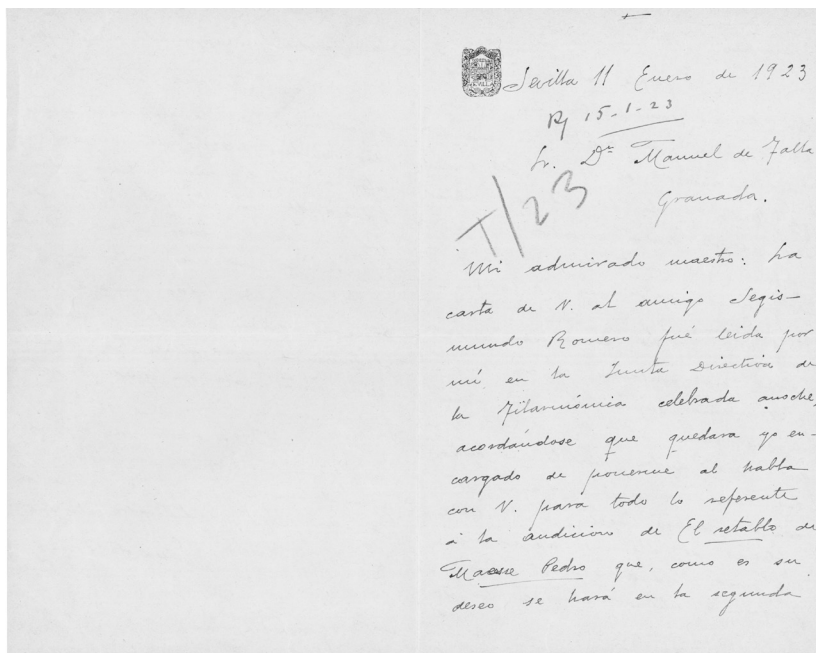 Sevilla 11 Enero de 1923
R/ 15-1-23
Sr. Dn Manuel de Falla
Granada.
T/23
Mi admirado maestro: La
carta de V. al amigo Segis-
mundo Romero fué leida por
mí en la Junta Directiva de
la Filarmónica celebrada anoche,
acordándose que quedara yo en-
cargado de ponerme al habla
con V. para todo lo referente
á la audicion de El retablo de
Maese Pedro que, como es su
deseo se hará en la segunda